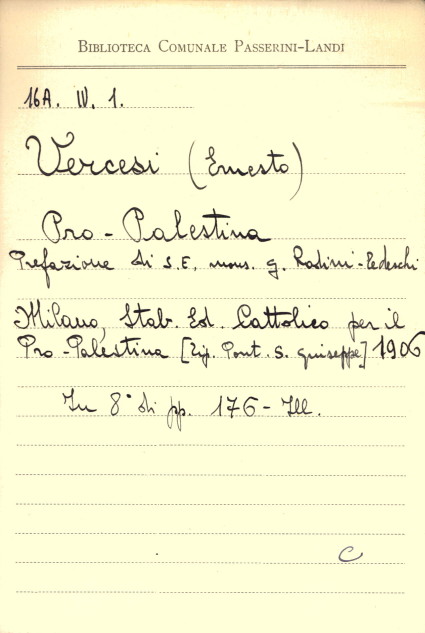 BIBLIOTECA COMUNALE PASSERINI-LANDI
16A. IV. 1.
Vercesi (Ernesto)
Pro-Palestina
Prefazione di S.E. mons. G. Radini-Tedeschi
Milano, Stab. Ed. Cattolico per il
Pro-Palestina [Tip. Pont. S. Giuseppe] 1906
In 8° di pp. 176 - Ill.
C